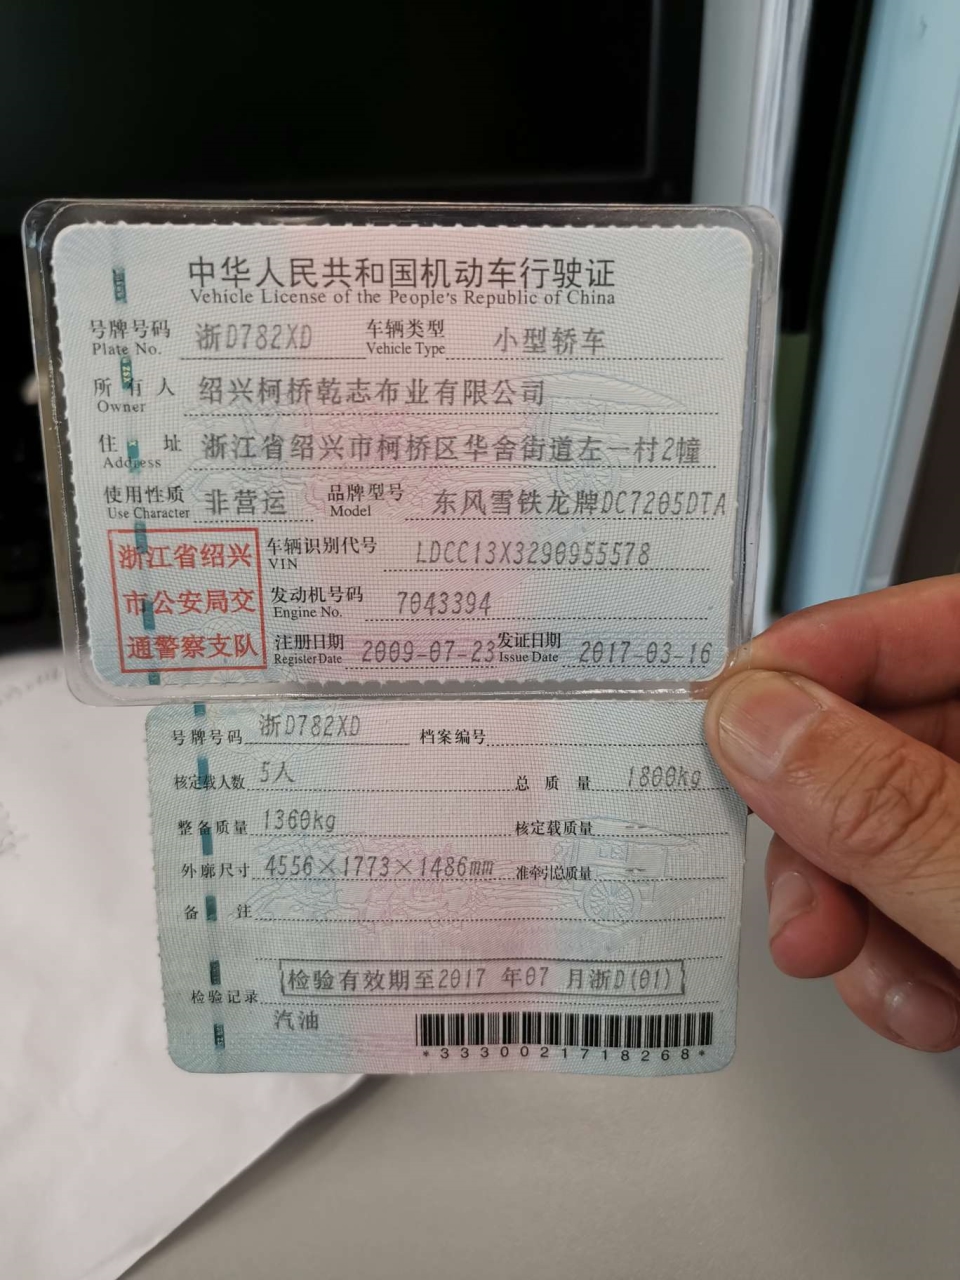 中华人民共和国机动车行驶证
Vehicle License of the People's Republic of China
号牌号码 浙D782XD 车辆类型 小型轿车
Plate No. Vehicle Type
所有人 绍兴柯桥乾志布业有限公司
Owner
住址 浙江省绍兴市柯桥区华舍街道左一村2幢
Address
使用性质 非营运 品牌型号 东风雪铁龙牌DC7205DTA
Use Character Model
浙江省绍兴
市公安局交
通警察支队
车辆识别代号 LDCC13X3290955578
VIN
发动机号码 7043394
Engine No.
注册日期 2009-07-23 发证日期 2017-03-16
Register Date Issue Date
号牌号码 浙D782XD 档案编号
核定载人数 5人 总质量 1800kg
整备质量 1360kg 核定载质量 --
外廓尺寸 4556×1773×1486mm 准牵引总质量 --
备注
检验记录 检验有效期至2017 年07 月浙D(01)
汽油
*3330021718268*